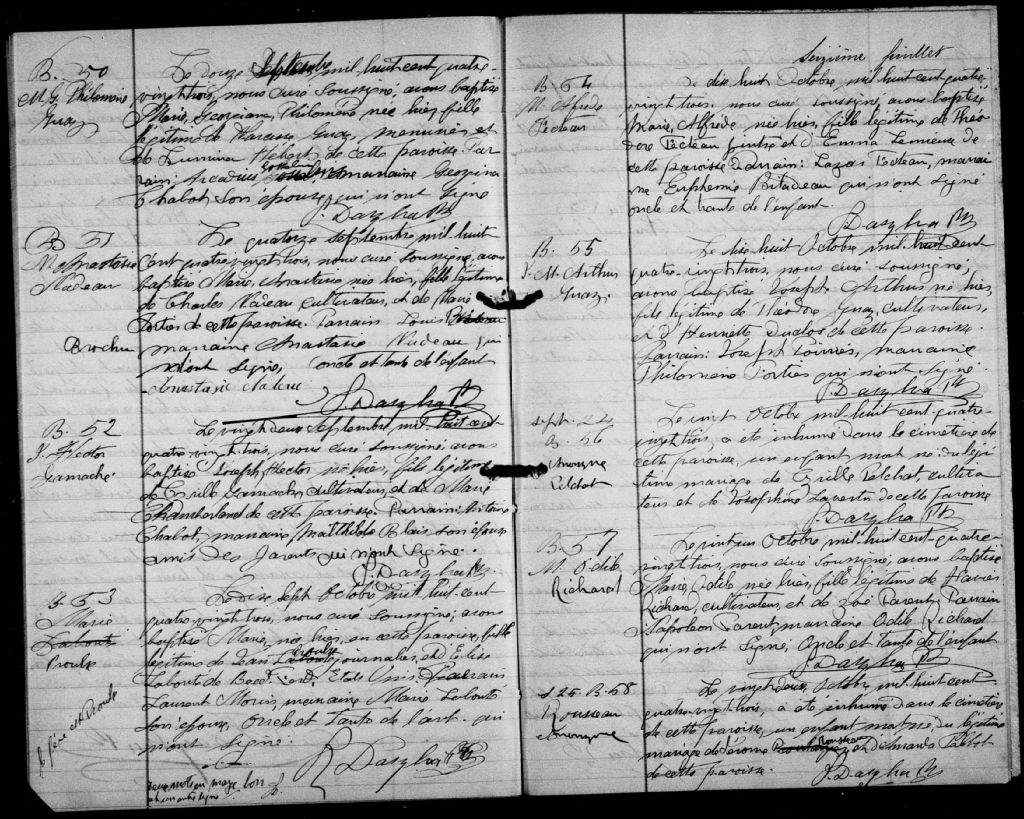 B. 50
M. G. Philomène
Guay
Le douze Septembre mil huit cent quatre-
vingt trois, nous curé soussigné, avons baptisé
Marie, Georgiana, Philomène née hier, fille
légitime de Narcisse Guay, menuisier et
de Lumina Hébert de cette paroisse. Par-
rain: Arcadius marraine Georgina
Chabot, son épouse, qui n'ont signé
B. 51
M. Anastasie
Nadeau
Le quatorze Septembre mil-huit
cent quatre vingt trois, nous curé soussigné, avons
baptisé Marie, Anastasie née hier, fille légitime
de Charles Nadeau cultivateur, et de Marie
Fortier de cette paroisse. Parrain Louis
Brochu
marraine Anastasie Nadeau qui
signé, oncle et tante de l'enfant
Anastasie Nadeau
B. 52
J. Hector
Gamache
Le vingt deux Septembre mil huit cent
quatre vingt trois, nous curé soussigné, avons
baptisé Joseph, Hector né hier, fils légitime
de Cyrille Gamache, Cultivateur, et de Marie
Chamberland de cette paroisse. Parrain: Antoine
Chabot, marraine, Matthilde Blais son épouse
amis des parents qui n'ont signé.
B. 53
Marie
Labonté
Proulx
Le dix sept Octobre mil huit cent
quatre vingt trois, nous curé soussigné, avons
baptisé Marie, née hier, en cette paroisse, fille
légitime de Jean Labonté Proulx journalier, et d'Elise
Labonté de États Unis. Parrain
Laurent Morin, marraine Marie Labonté
son épouse, oncle et tante de l'enf. qui
n'ont signé.
Seizième feuillet
B 54
M. Alfrède
Fecteau
Le dix huit Octobre, mil huit cent quatre
vingt trois. nous curé soussigné, avons baptisé
Marie, Alfrède née hier, fille légitime de Théo-
dore Fecteau peintre et d'Emma Lemieux de
cette paroisse Parrain: Lazar Fecteau, marrai-
ne Euphemie Bilodeau qui n'ont signé
oncle et tante de l'enfant.
B. 55
J. M. Arthur
Guay
Le dix huit Octobre mil-huit cent
quatre-vingt trois, nous curé soussigné,
avons baptisé Joseph Arthur né hier,
fils légitime de Théodore Guay, cultivateur,
et d'Henriette Duclos de cette paroisse.
Parrain: Joseph marraine
Philomène Fortier qui n'ont signé.
Sept. 24
B. 56
Anonyme
Pelchat
Le vingt Octobre mil-huit cent-quatre-
vingt trois, a été inhumé dans le cimetière de
cette paroisse, un enfant mort né du légi-
time mariage de Cyrille Pelchat, cultiva-
teur et de Josephine de cette paroisse
B. 57
M. Odile
Richard
Le vingt un Octobre mil-huit cent-quatre-
vingt trois, nous curé soussigné, avons baptisé
Marie, Odile née hier, fille légitime de
Richard, cultivateur, et de Zoé Parent, Parrain
Napoleon Parent marraine Odile Richard
qui n'ont signé, Oncle et Tante de l'enfant
S 25 B-58
Rousseau
Anonyme
Le vingt deux, Octobre mil-huit cent
quatre-vingt trois, a été inhumé dans le cimetière
de cette paroisse, un enfant du légitime
mariage de Jérome Rousseau et
de cette paroisse.